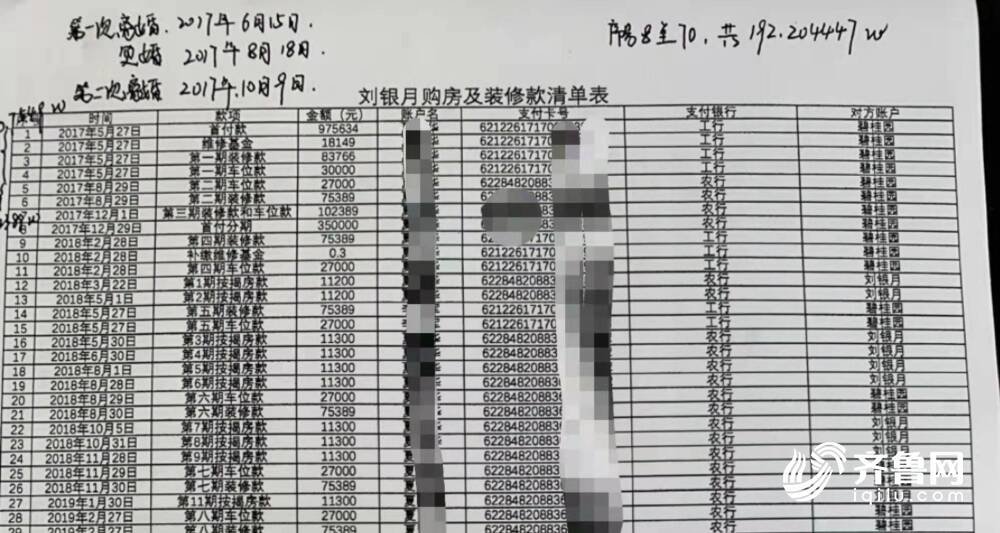 第一次离婚:2017年6月15日.
复婚 2017年8月18日.
第二次离婚 2017年.10月9日.
序号8至70,共192.204447w
刘银月购房及装修款清单表
时间 款项 金额（元） 账户名 支付卡号 支付银行 对方账户
1 2017年5月27日 首付款 975634 62122617170 工行 碧桂园
2 2017年5月27日 维修基金 18149 62122617170 工行 碧桂园
3 2017年5月27日 第一期装修款 83766 62122617170 工行 碧桂园
4 2017年5月27日 第一期车位款 30000 62122617170 工行 碧桂园
5 2017年8月29日 第二期车位款 27000 62284820883 农行 碧桂园
6 2017年8月29日 第二期装修款 75389 农行 碧桂园
2017年12月1日 第三期装修款和车位款 102389 农行 碧桂园
2017年12月29日 首付分期 350000 农行 碧桂园
9 2018年2月28日 第四期装修款 75389 62122617170 工行 碧桂园
10 2018年2月28日 补缴维修基金 0.3 62122617170 工行 碧桂园
11 2018年2月28日 第四期车位款 27000 62122617170 工行 碧桂园
12 2018年3月22日 第1期按揭房款 11200 62284820883 农行 刘银月
13 2018年5月1日 第2期按揭房款 11200 62284820883 农行 刘银月
14 2018年5月27日 第五期装修款 75389 62122617170 工行 碧桂园
15 2018年5月27日 第五期车位款 27000 62122617170 工行 碧桂园
16 2018年5月30日 第3期按揭房款 11300 62284820883 农行 刘银月
17 2018年6月30日 第4期按揭房款 11300 62284820883 农行 刘银月
18 2018年8月1日 第5期按揭房款 11300 62284820883 农行 刘银月
19 2018年8月28日 第6期按揭房款 11300 62284820883 农行 刘银月
20 2018年8月29日 第六期车位款 27000 622848208836 农行 碧桂园
21 2018年8月30日 第六期装修款 75389 622848208836 农行 碧桂园
22 2018年10月5日 第7期按揭房款 11300 622848208836 农行 刘银月
23 2018年10月31日 第8期按揭房款 11300 622848208836 农行 刘银月
24 2018年11月28日 第9期按揭房款 11300 夏 622848208836 农行
25 2018年11月29日 第七期车位款 27000 夏 622848208836 农行
26 2018年11月30日 第七期装修款 75389 夏 622848208836 农行
27 2019年1月30日 第11期按揭房款 11300 夏 622848208836 农行
28 2019年2月27日 第八期车位款 27000 夏 622848208836 农行 碧桂园
29 2019年2月27日 第八期装修款 75389 夏 622848208836 农行 碧桂园
齐鲁网
iqilu.com